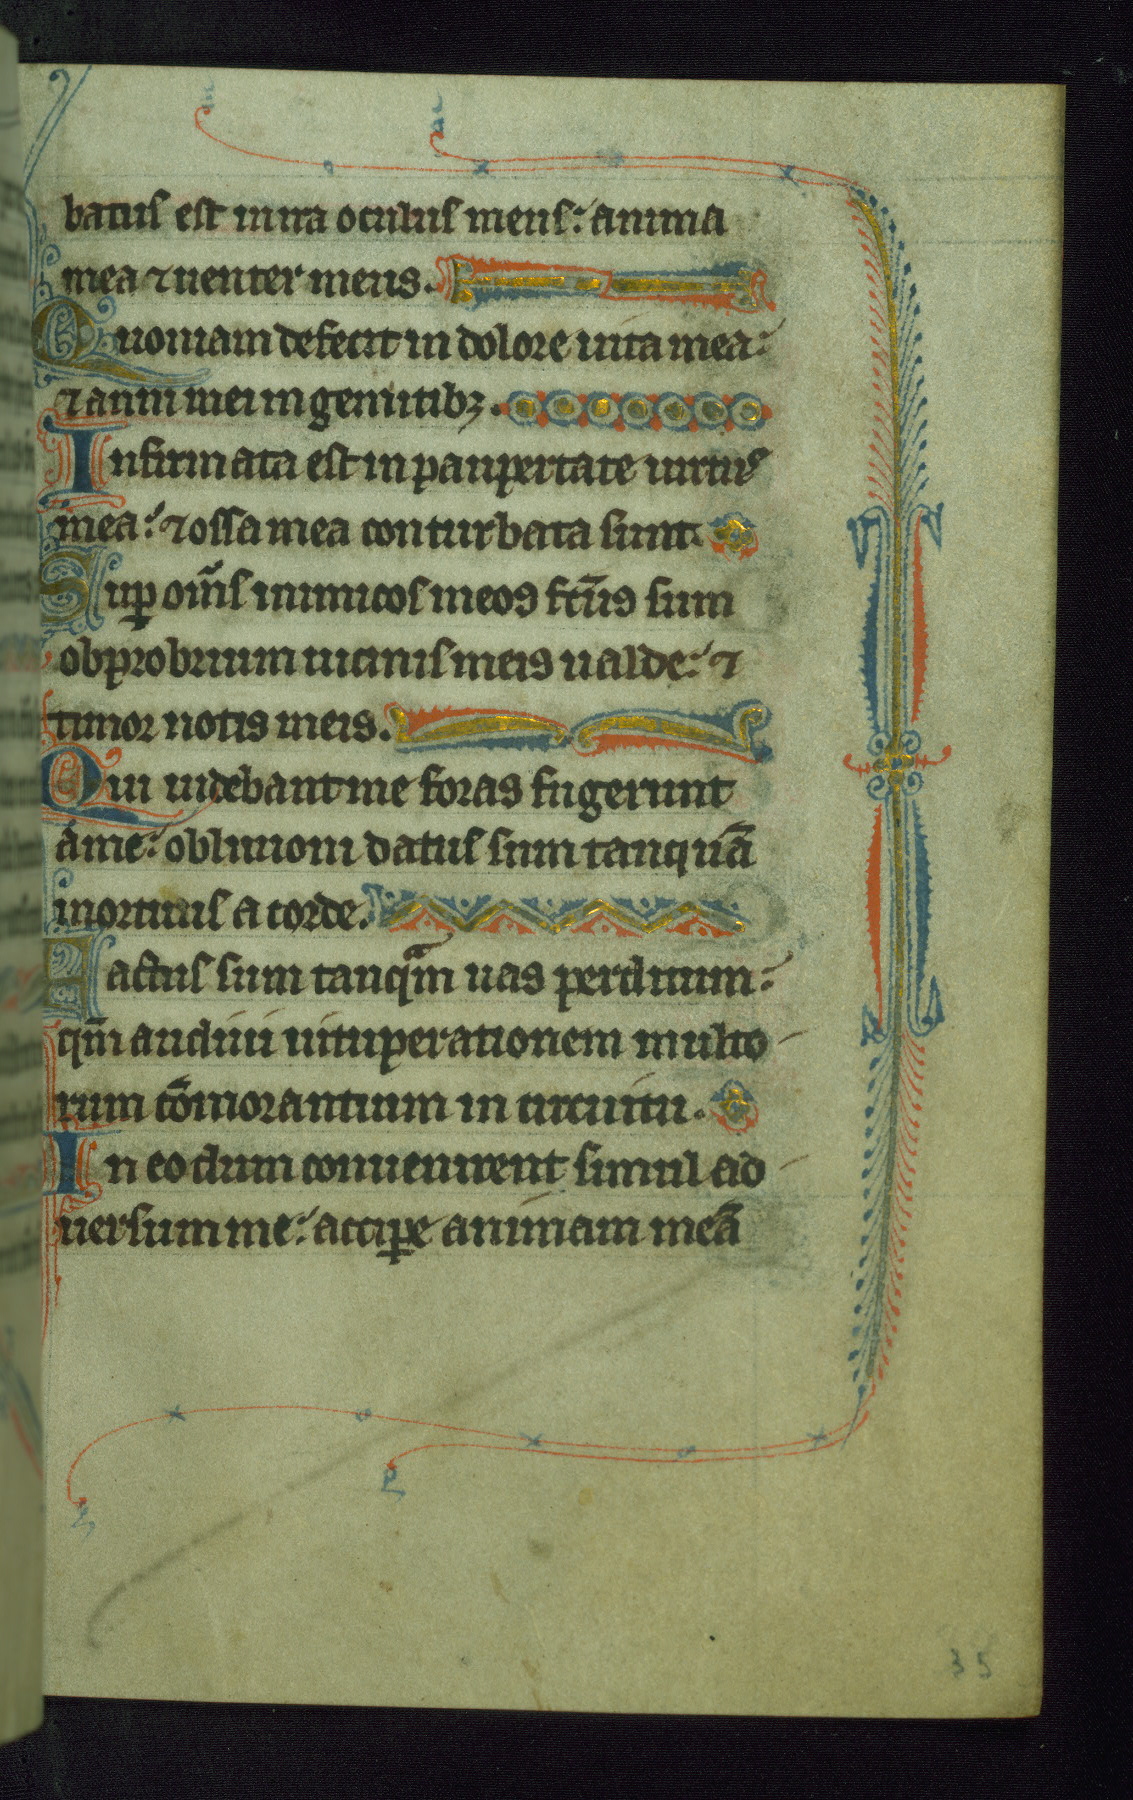 batus est in ira oculus meus: anima
mea ⁊ uenter meus.
Quoniam defecit in dolore uita mea:
⁊ anni mei in gemitibꝫ.
Infirmata est in paupertate uirtus
mea: ⁊ ossa mea conturbata sunt.
Suꝑ om̄s inimicos meos fc̄us sum
obprobrium uicinis meis ualde: ⁊
timor notis meis.
Qui uidebant me foras fugerunt
a me: obliuioni datus sum tanquā
mortuus a corde.
Factus sum tanqᵃm uas perditum:
qm̄ audiui uituperationem multo-
rum cōmorantium in circuitu.
In eo dum conuenirent simul ad-
uersum me: acciꝑe animam meā
35